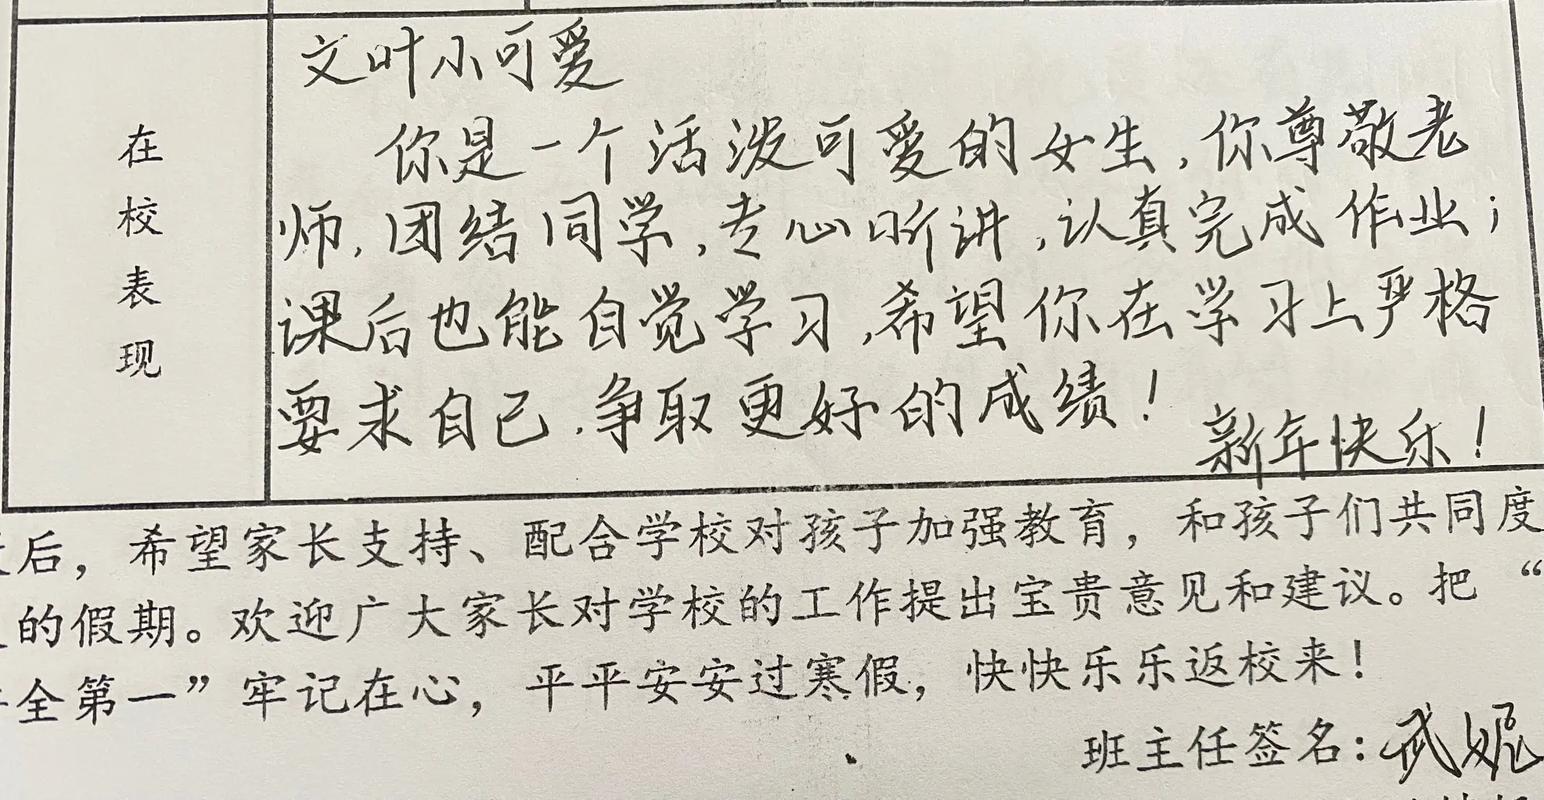 文叶小可爱
在校表现
你是一个活泼可爱的女生,你尊敬老
师,团结同学,专心听讲,认真完成作业;
课后也能自觉学习,希望你在学习上严格
要求自己.争取更好的成绩!
新年快乐!
后，希望家长支持、配合学校对孩子加强教育，和孩子们共同度
的假期。欢迎广大家长对学校的工作提出宝贵意见和建议。把“
全第一”牢记在心，平平安安过寒假，快快乐乐返校来！
班主任签名：武妮